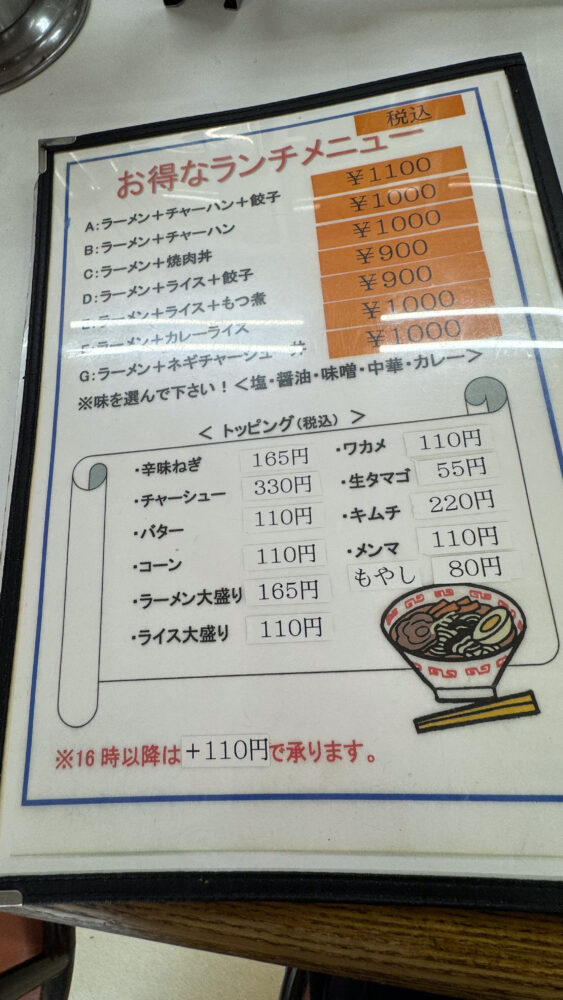 税込
お得なランチメニュー
A:ラーメン+チャーハン+餃子 ¥1100
B:ラーメン+チャーハン ¥1000
C:ラーメン+焼肉丼 ¥1000
D:ラーメン+ライス+餃子 ¥900
E:ラーメン+ライス+もつ煮 ¥900
F:ラーメン+カレーライス ¥1000
G:ラーメン+ネギチャーシュー丼 ¥1000
※味を選んで下さい!<塩・醤油・味噌・中華・カレー>
< トッピング(税込) >
・辛味ねぎ 165円 ・ワカメ 110円
・チャーシュー 330円 ・生タマゴ 55円
・バター 110円 ・キムチ 220円
・コーン 110円 ・メンマ 110円
・ラーメン大盛り 165円 もやし 80円
・ライス大盛り 110円
※16時以降は+110円で承ります。